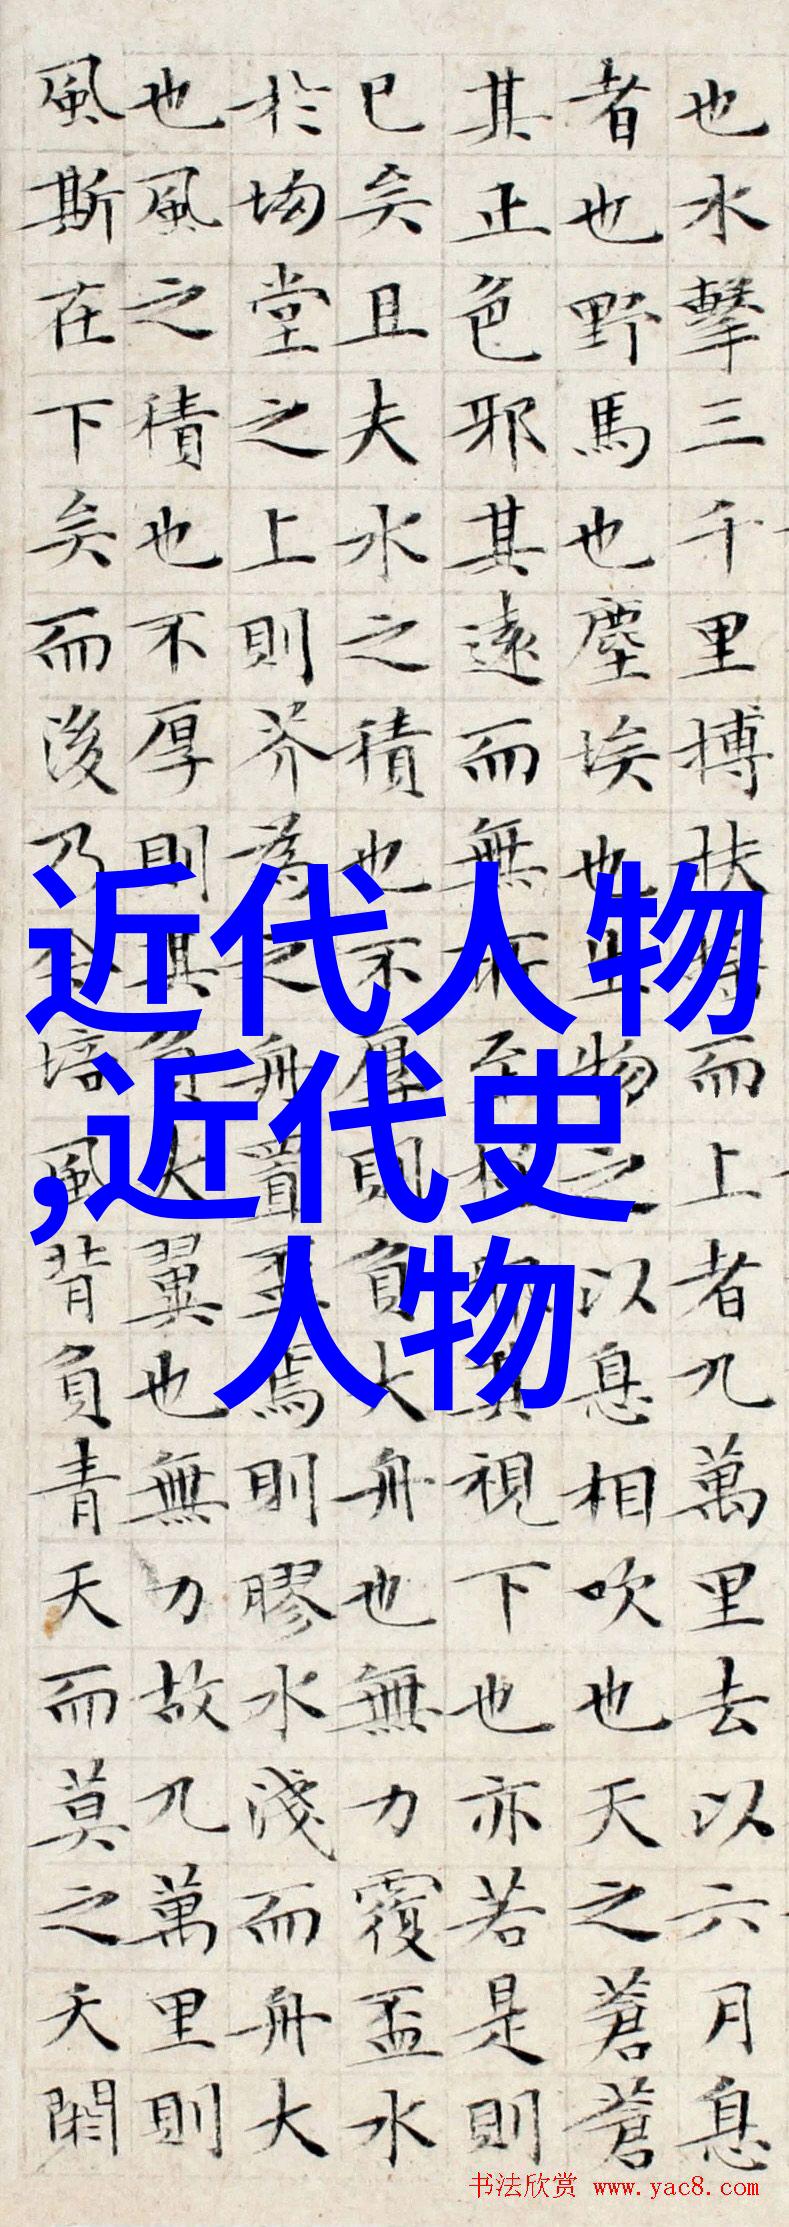 也水擊三千里搏扶搖而上者九萬里去以六月息
者也野馬也塵埃也生物之以息相吹也天之蒼蒼
其正色邪其遠而無所至極邪其視下也亦若是則
已矣且夫水之積也不厚則負大舟也無力覆盃水
於坳堂之上則芥為之舟置盃焉則膠水淺而舟大
也風之積也不厚則其負大翼也無力故九萬里則
風斯在下矣而後乃今培風背負青天而莫之夭閼
近代人物
,近代史
人物
书法欣赏 www.yac8.com